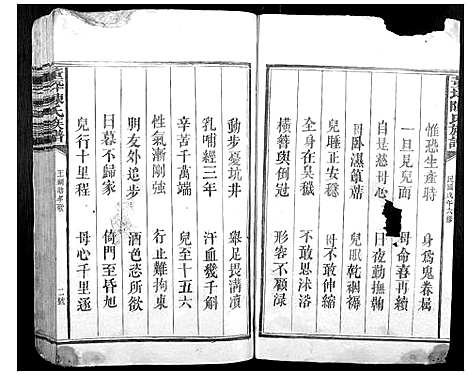 惟恐生產時　身為鬼眷屬
一旦見兒面　母命喜再續
自是慈母心　日夜勤撫
母臥濕簟蓆　兒眠乾裀褥
兒睡正安穩　母不敢伸縮
全身在臭穢　不敢思沐浴
橫簪與倒冠　形容不顧淥
民國戊午六修
動步憂坑井　舉足畏溝瀆
乳哺經三年　汗血獲千斛
辛苦千萬端　兒至十五六
性氣漸剛強　行止難拘束
朋友外追步　酒色恣所欲
日暮不歸家　倚門至昏旭
兒行十里程　母心千里逐
陳氏族譜
王剛勸孝歌
二號